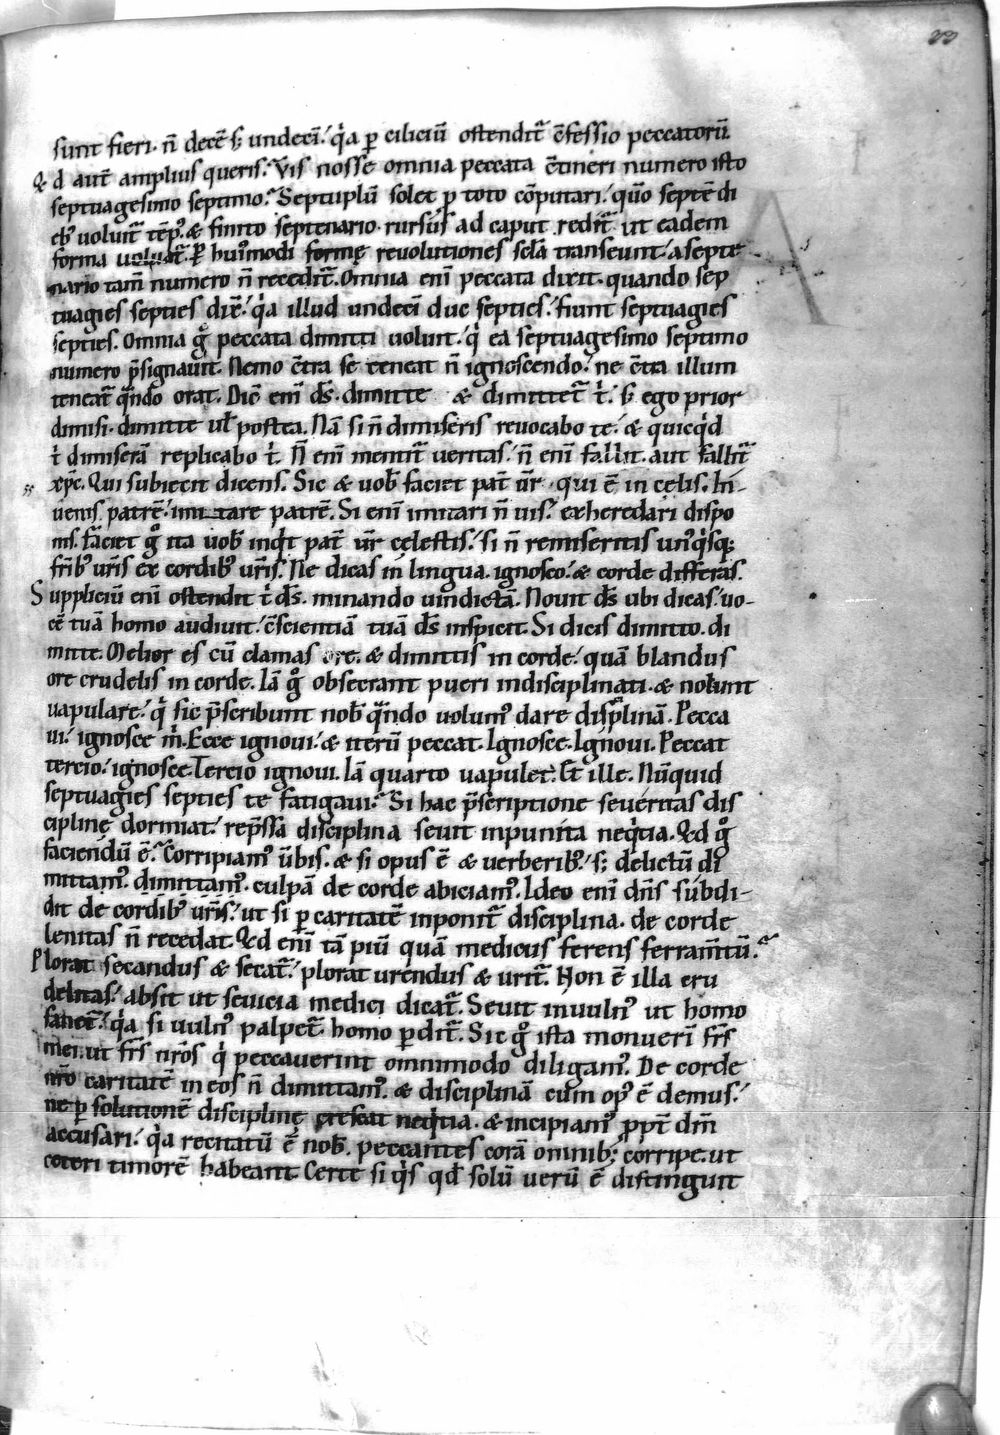 22
sunt fieri. n̄ decē s; undecī. q̇a p̱ ciliciū ostendit᷑ c̄fessio peccatorū.
Qd aut̄ amplius queris? Vis nosse omnia peccata c̄tineri numero isto
septuagesimo septimo? Septuplū solet p̱ toto cōputari. quō septē di
eb; uoluit᷑ tēp᷒. & finito septenario. rursus ad caput redit᷑ ut eadem
forma uoluat᷑. P̱ hui᷒modi formę reuolutiones sc̄la transeunt. a septe
nario tam̄ numero n̄ recedit᷑. Omnia enī peccata dixit. quando sep
tuagies septies dix̄. q̇a illud undecī duc septies. fiunt septuagies
septies. Omnia g̊ peccata dimitti uoluit. q̇ ea septuagesimo septimo
numero p̄signauit. Nemo c̄tra se teneat n̄ ignoscendo. ne c̄tra illum
teneat᷑ q̄ndo orat. Dic̄ enī ds̄. dimitte & dimittet᷑ ṫ. s; ego prior
dimisi. dimitte ul̄ postea. Nā si n̄ dimiseris reuocabo te. & quicq̇d
ṫ dimiserā replicabo ṫ. N̄ enī mentit᷑ ueritas. n̄ enī fallit. aut fallit᷑
xp̄c. Qui subiecit dicens. Sic & uob̄ faciet pat̄ ur̄. qui ē in cęlis. In-
uenis patrē. imitare patrē. Si enī imitari n̄ uis. exheredari dispo
nis. Faciet g̊ ita uob̄ inq̇t pat̄ ur̄ celestis. si n̄ remiseritis un᷒q̇sq;
frīb; ur̄is ex cordib; ur̄is. Ne dicas in lingua. ignosco. & corde differas.
Suppliciū enī ostendit ṫ ds̄. minando uindictā. Nouit ds̄ ubi dicas. uo-
cē tuā homo audiuit. c̄scientiā tuā ds̄ inspicit. Si dicis dimitto. di
mitte. Melior es cū clamas ore. & dimittis in corde. quā blandus
ore crudelis in corde. Iā g̊ obsecrant pueri indisciplinati. & nolunt
uapulare. q̇ sic p̄scribunt nob̄ q̄ndo uolum᷒ dare disciplinā. Pecca
ui. ignosce ṁ. Ecce ignoui. & iterū peccat. Ignosce. Ignoui. Peccat
tercio. ignosce. Tercio ignoui. Iā quarto uapulet. Et ille. Nūquid
septuagies septies te fatigaui? Si hac p̄scriptione seueritas dis
ciplinę dormiat. rep̄ssa disciplina seuit inpunita neq̇tia. Qd g̊
faciendū ē? Corripiam᷒ ūbis. & si opus ē & uerberib᷒. s; delictū di
mittam᷒. dimittam᷒. culpā de corde abiciam᷒. Ideo enī dn̄s subdi-
dit de cordib᷒ ur̄is. ut si p̱ caritatē inponit᷑ disciplina. de corde
lenitas n̄ recedat. Qd enī tā piū quā medicus ferens ferram̄tū?
Plorat secandus & secat᷑. plorat urendus & urit᷑. Non ē illa cru
delitas. absit ut seuicia medici dicat᷑. Seuit in uuln᷒ ut homo
sanet᷑. q̇a si uuln᷒ palpet᷑. homo p̱dit᷑. Sic g̊ ista monuerī frs̄
mei. ut frs̄ nr̄os q̇ peccauerint ommimodo diligam᷒. De corde
nr̄o caritatē in eos n̄ dimittam᷒. & disciplinā cum op᷒ ē demus.
ne p̱ solutionē disciplinę crescat neq̇tia. & incipiam᷒ p̱pt̄ dm̄
accusari. q̇a recitatū ē nob̄. peccantes corā omnib; corripe. ut
ceteri timorē habeant. Certe si q̇s qd̄ solū uerū ē distinguit